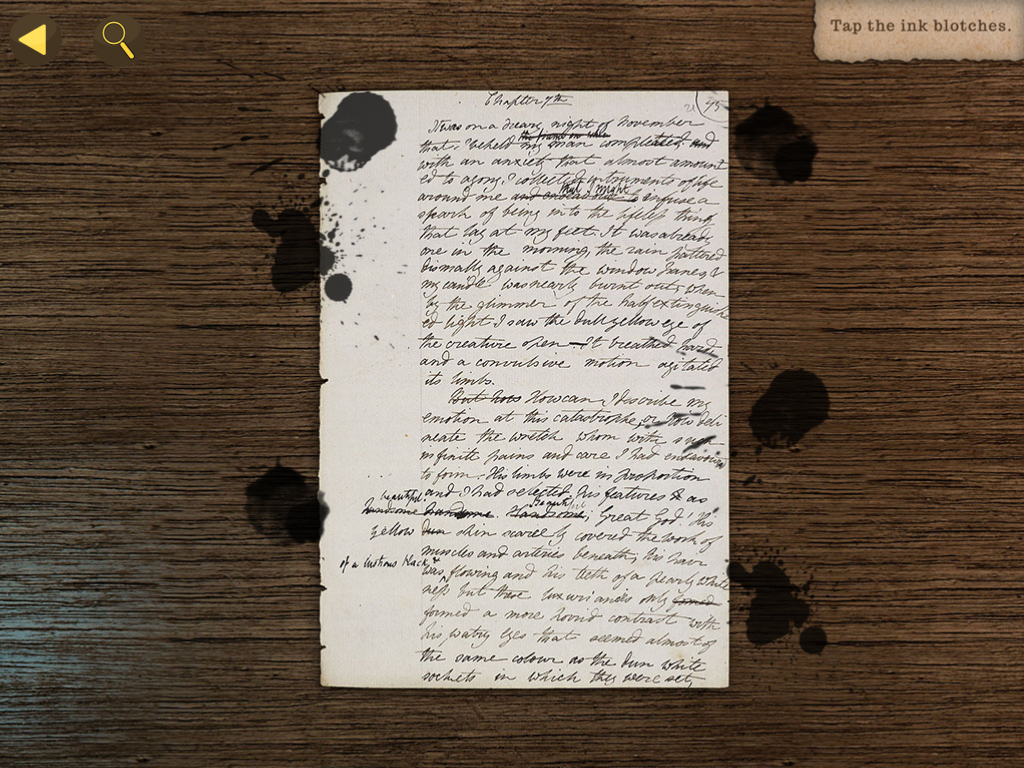 Tap the ink blotches.
Chapter 7th
45
It was on a dreary night of November
the frame on whic
that I beheld my man compleated; And
with an anxiety that almost amount
ed to agony, I collected instruments of life
that I might
around me and endeavour to infuse a
spark of being into the lifeless thing
that lay at my feet. It was already
one in the morning, the rain pattered
dismally against the window panes, &
my candle was nearly burnt out, when
by the glimmer of the half extinguish
ed light I saw the dull yellow eye of
the creature open - It breathed hard
and a convulsive motion agitated
its limbs.
But how How can I describe my
emotion at this catastrophe, or how deli
neate the wretch whom with such
infinite pains and care I had endeavour
to form. His limbs were in proportion
and I had selected his features & as
beautiful
Beautiful
handsome handsome. Handsome; Great God! His
yellow dun skin scarcely covered the work of
muscles and arteries beneath; his hair
of a lustrous black, &
was flowing and his teeth of a pearly white
ness but these luxuriances only formed
formed a more horrid contrast with
his watry eyes that seemed almost of
the same colour as the dun white
sockets in which they were set,